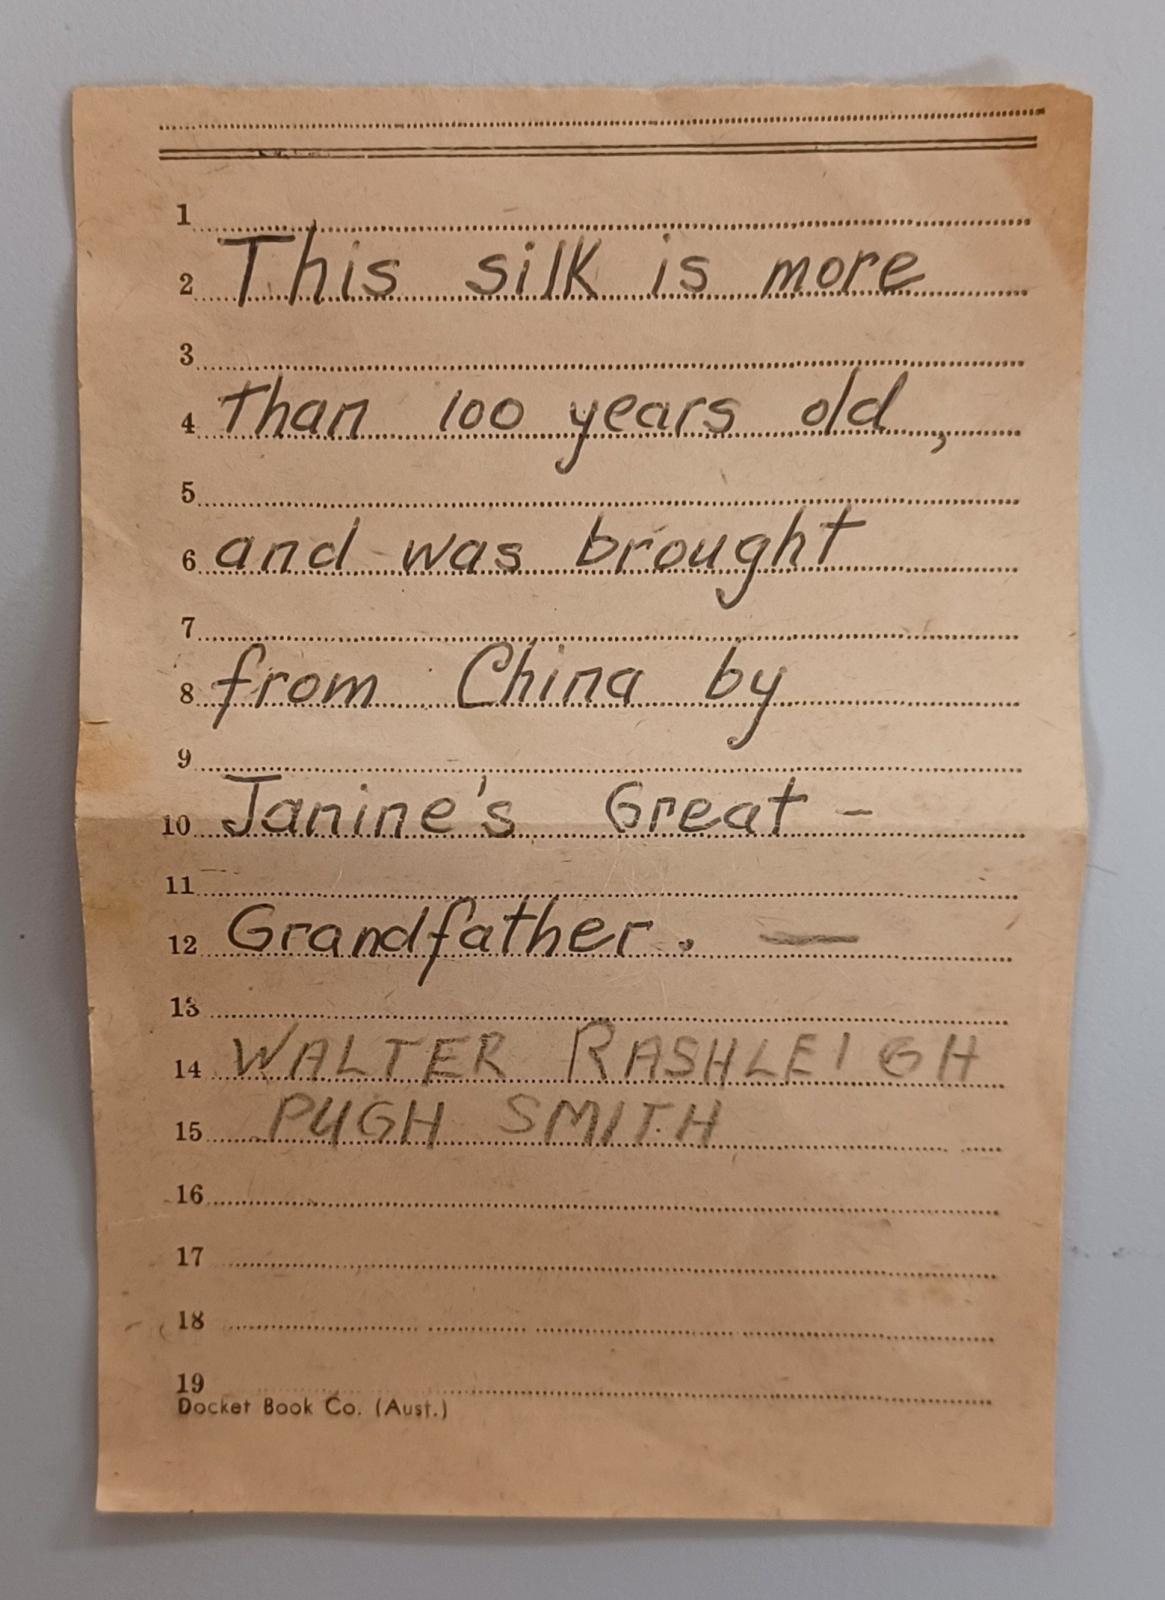 1
2 This silk is more
3
4 than 100 years old,
5
6 and was brought
7
8 from China by
9
10 Janine's Great -
11
12 Grandfather. —
13
14 WALTER RASHLEIGH
15 PUGH SMITH
16
17
18
19
Docket Book Co. (Aust.)